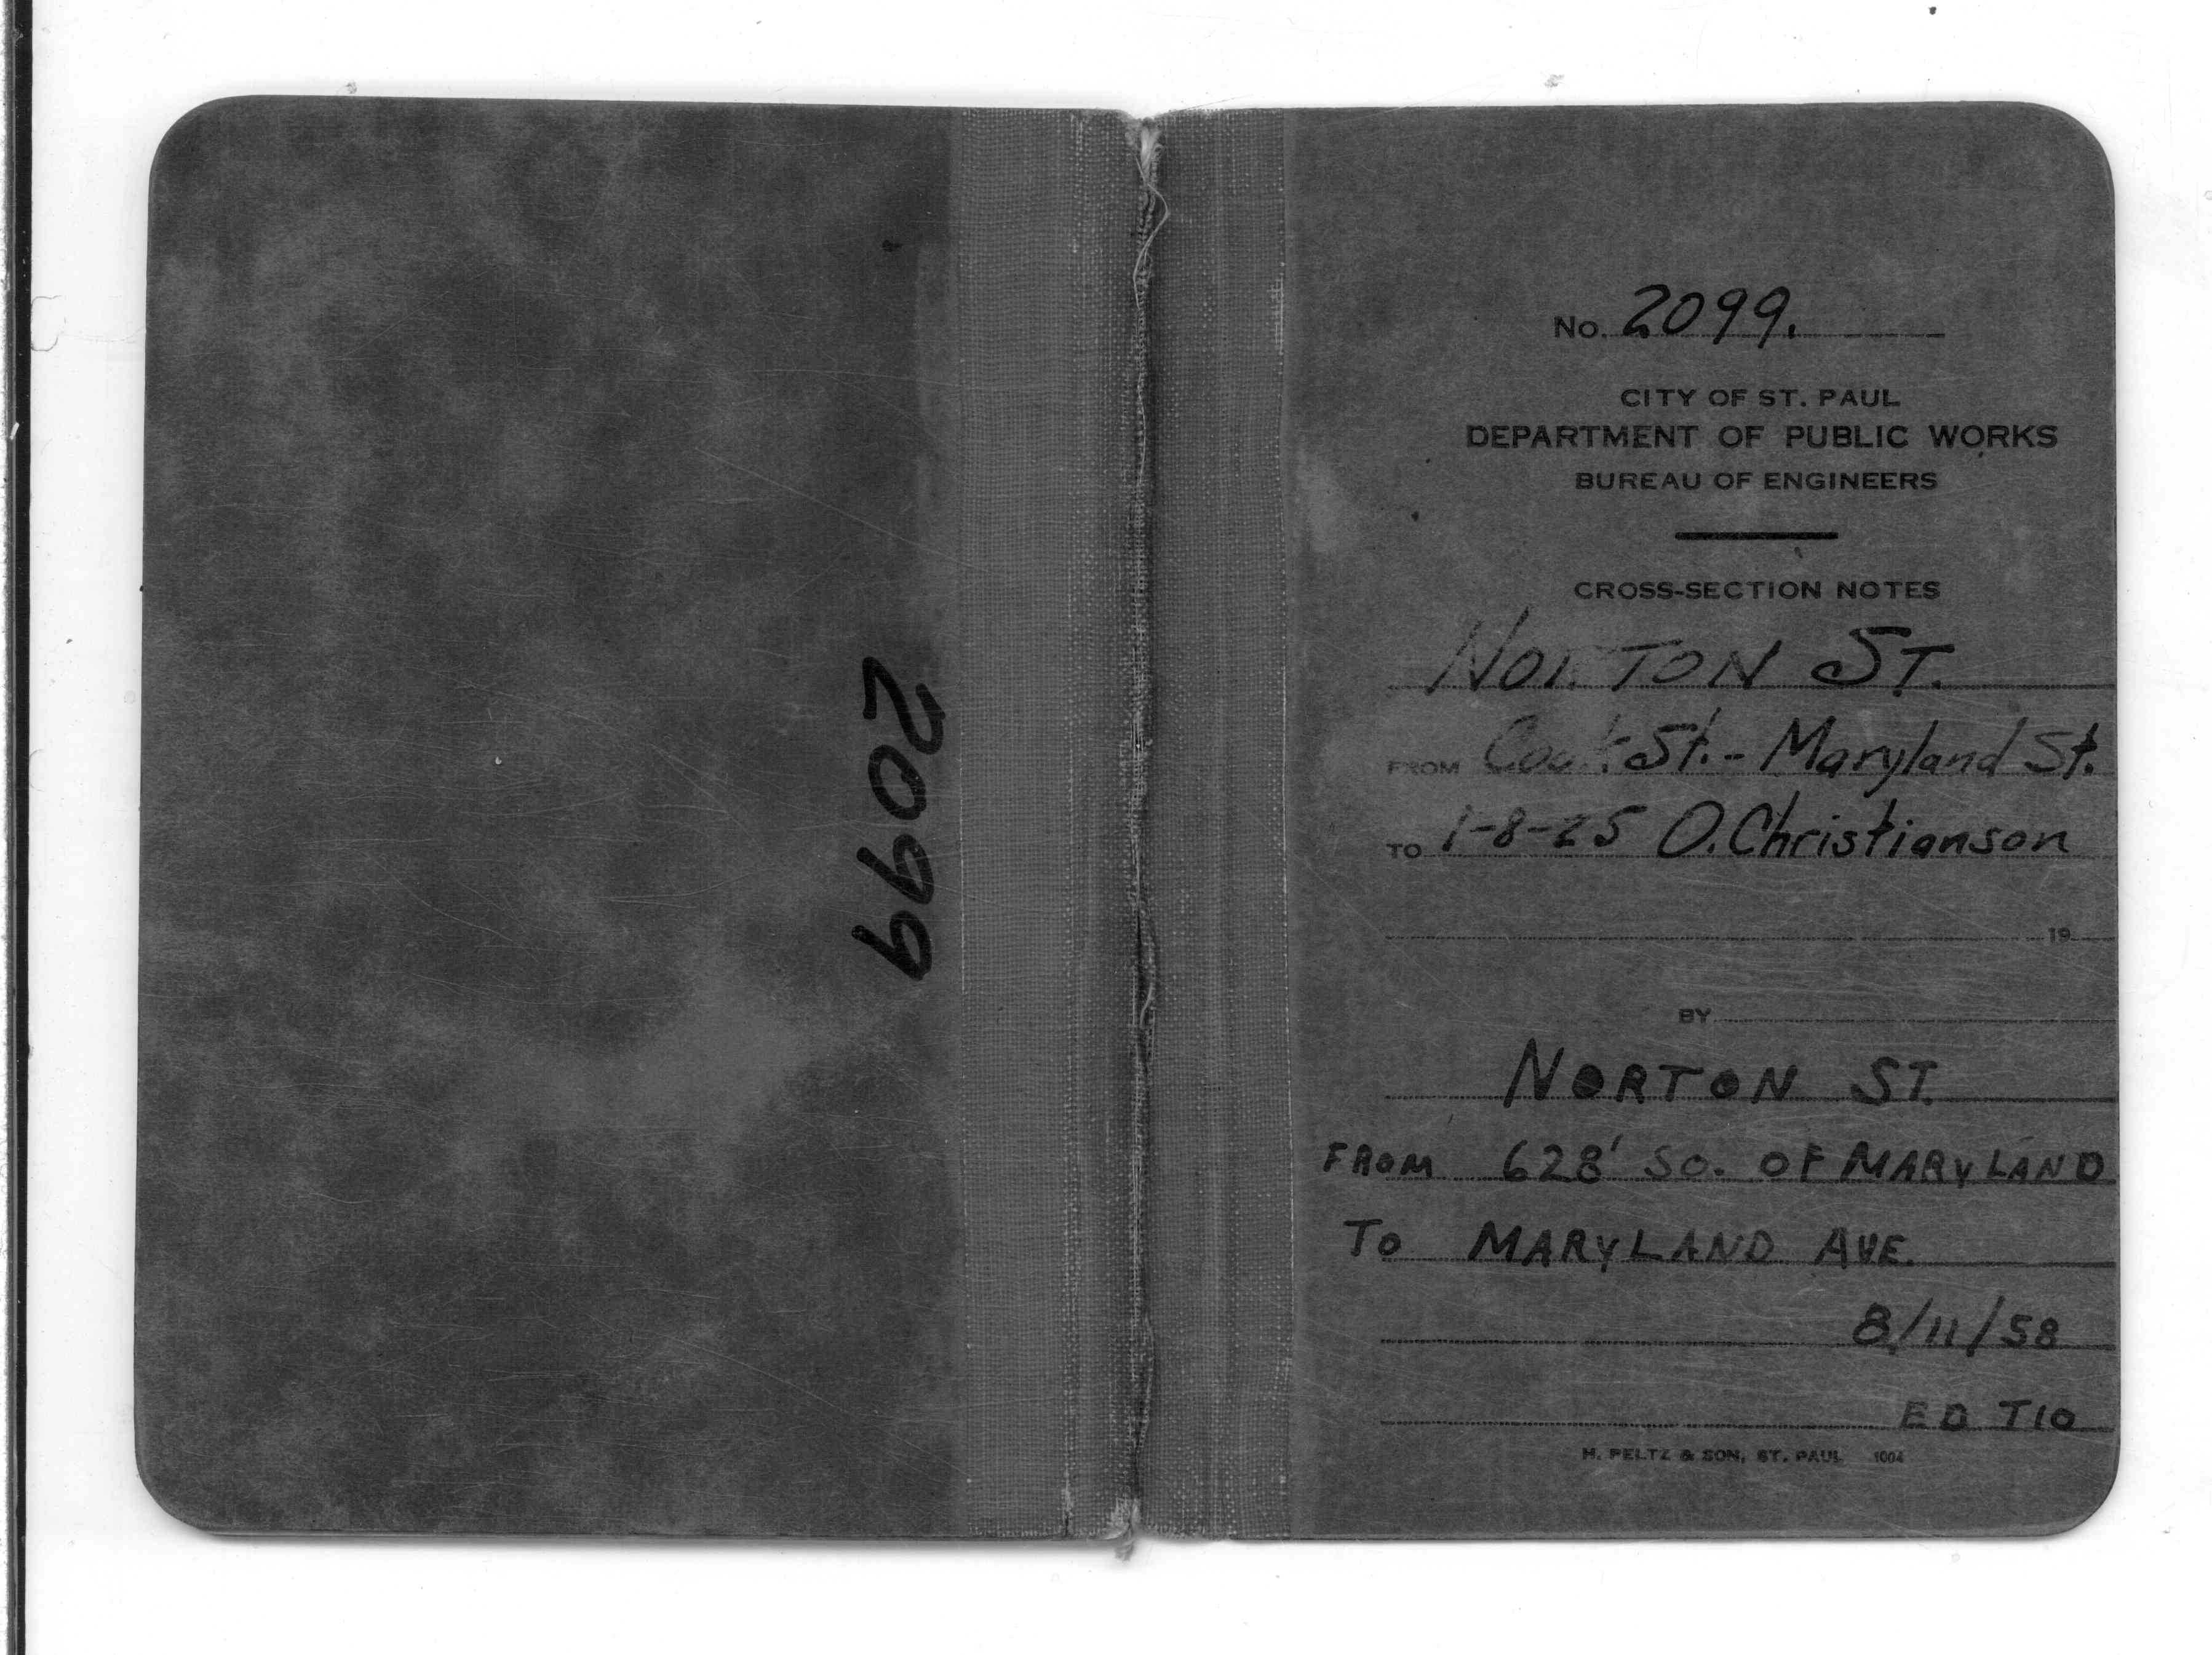 2099
No. 2099.
CITY OF ST. PAUL
DEPARTMENT OF PUBLIC WORKS
BUREAU OF ENGINEERS
CROSS-SECTION NOTES
NORTON ST.
FROM Cook St. - Maryland St.
TO 1-8-25 O. Christianson
19
BY
NORTON ST.
FROM 628' SO. OF MARYLAND
TO MARYLAND AVE.
8/11/58
ED T10
H. PELTZ & SON, ST. PAUL 1004